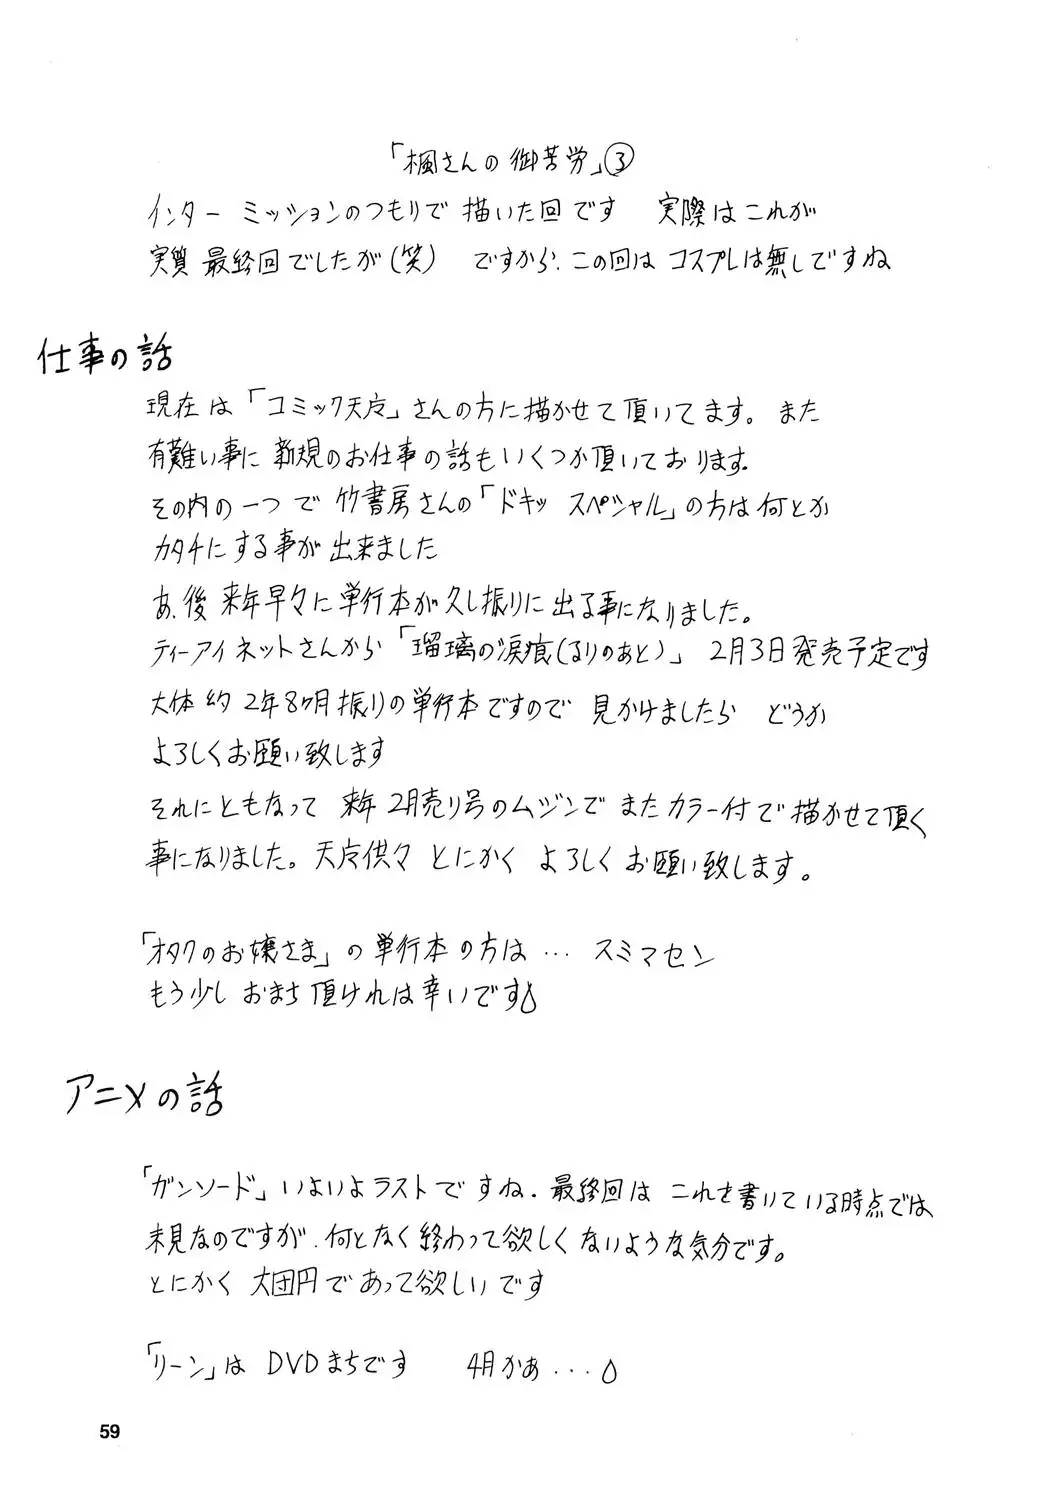 「楓さんの御苦労」③
インターミッションのつもりで描いた回です 実際はこれが
実質最終回でしたが(笑) ですから、この回はコスプレは無しですね
仕事の話
現在は「コミック天魔」さんの方に描かせて頂いてます。また
有難い事に新規のお仕事の話もいくつか頂いております。
その内の一つで竹書房さんの「ドキッ スペシャル」の方は何とか
カタチにする事が出来ました
あ、後来年早々に単行本が久し振りに出る事になりました。
ティーアイネットさんから「瑠璃の涙痕(るりのあと)」 2月3日発売予定です
大体約2年8ヶ月振りの単行本ですので見かけましたら どうか
よろしくお願い致します
それにともなって 来年2月売り号のムジンでまたカラー付で描かせて頂く
事になりました。天魔供々 とにかく よろしくお願い致します。
「オタクのお嬢さま」の単行本の方は… スミマセン
もう少しおまち頂ければ幸いです
アニメの話
「ガンソード」いよいよラストですね、最終回は これを書いている時点では
未見なのですが、何となく終わって欲しくないような気分です。
とにかく 大団円であって欲しいです
「リーン」は DVDまちです 4月かぁ...
59